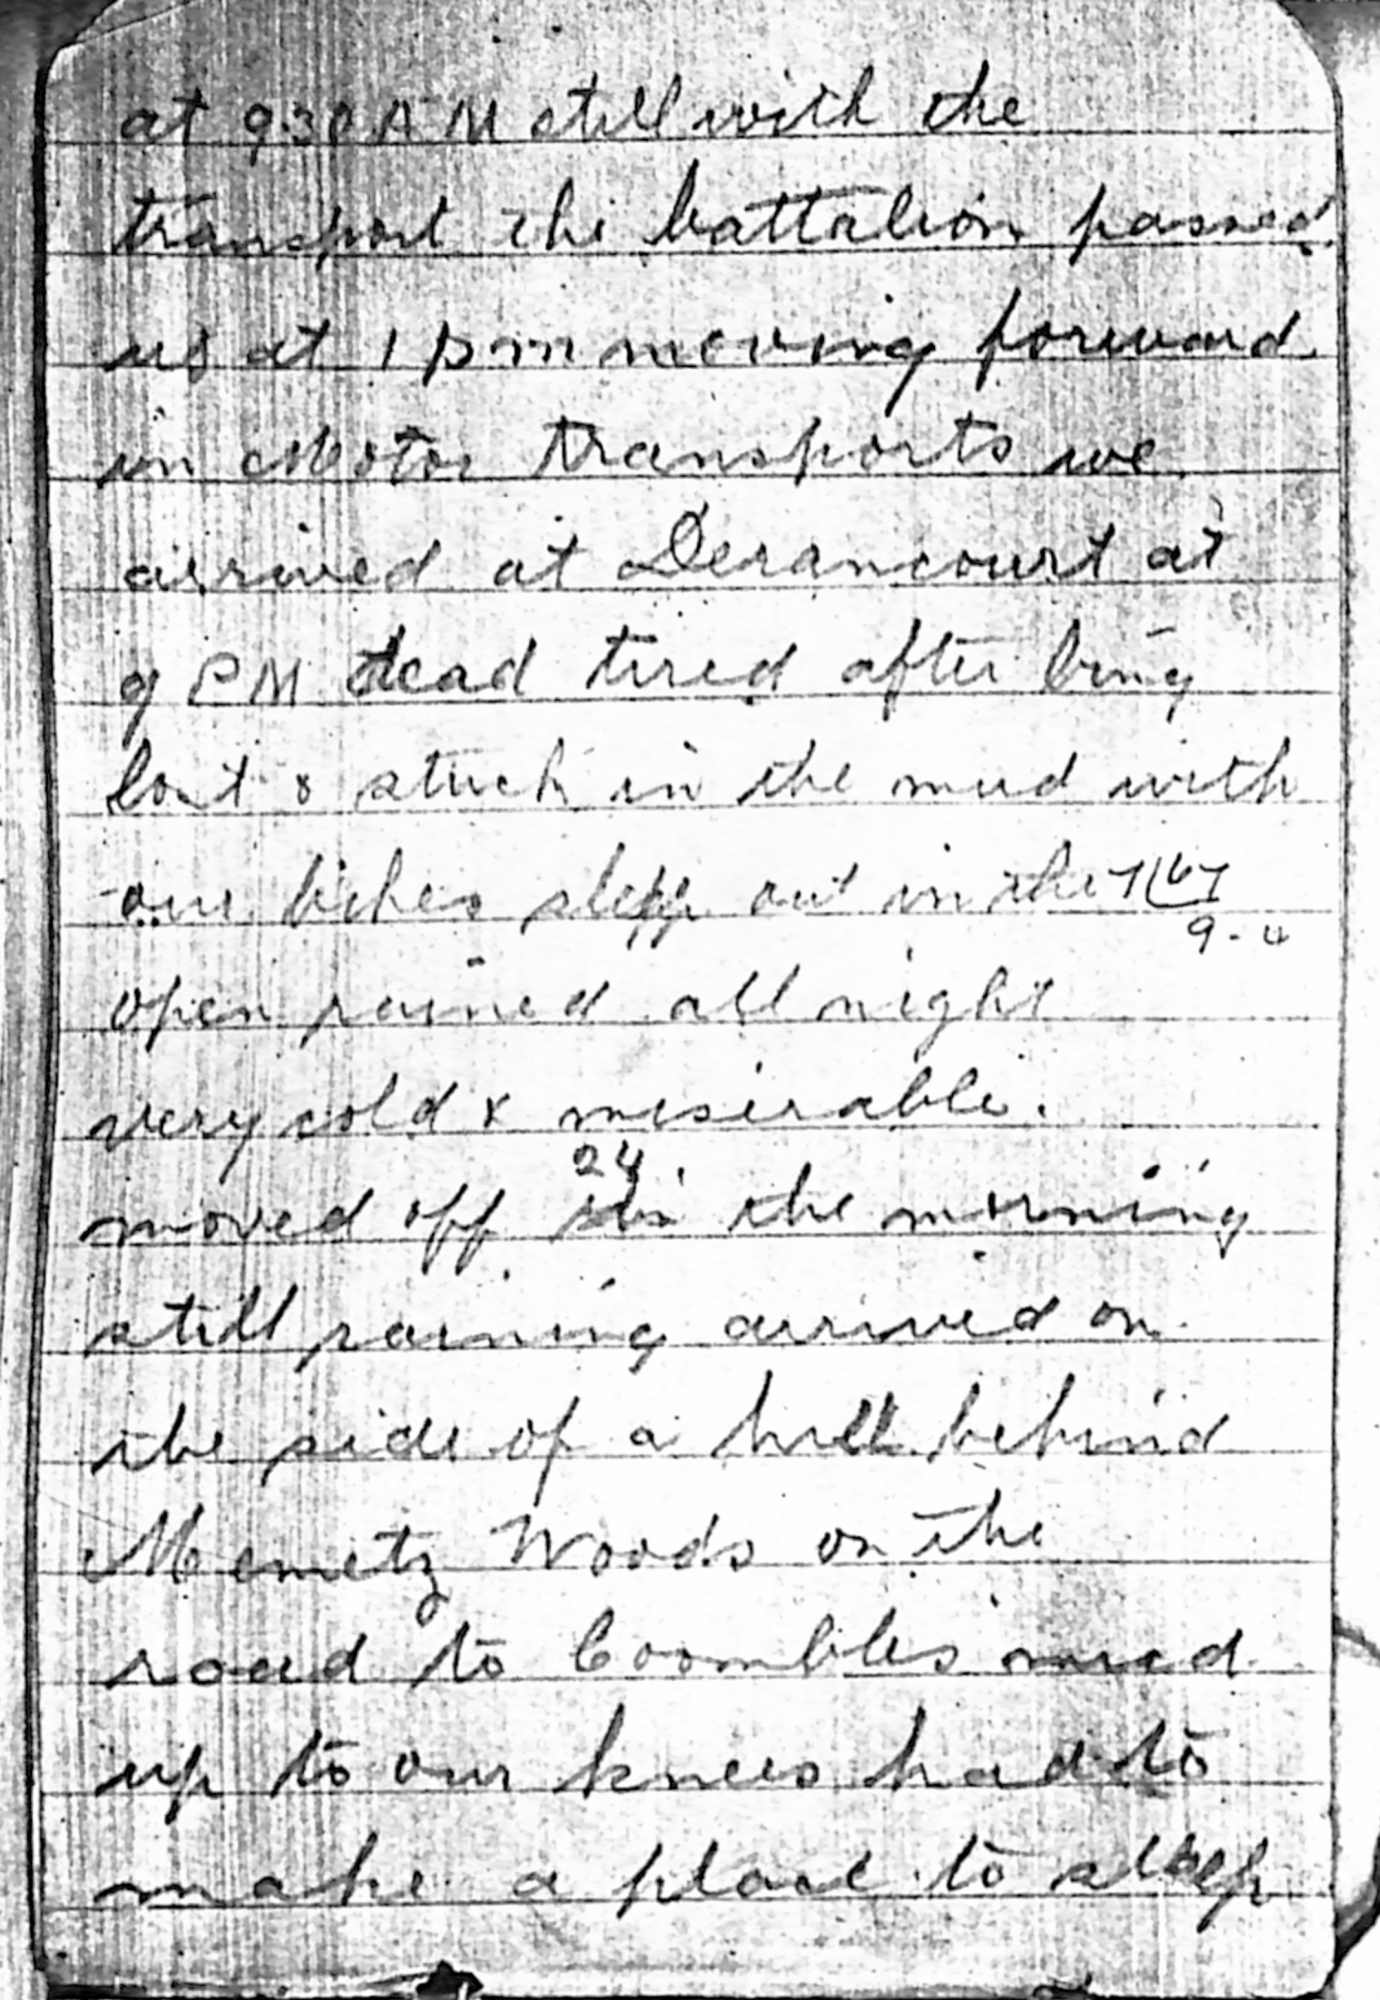 at 9.30 A M still with the
transport the battalion passed
us at 1 pm moving forward
in Motor transports we
arrived at Derancourt at
9 PM dead tired after being
lost & stuck in the mud with
our bikes sleep out in the
9-4
open rained all night
very cold & miserable.
24
moved off in the morning
still raining arrived on
the side of a hill behind
Memetz Woods on the
road to Coombles mud
up to our knees had to
make a place to sleep